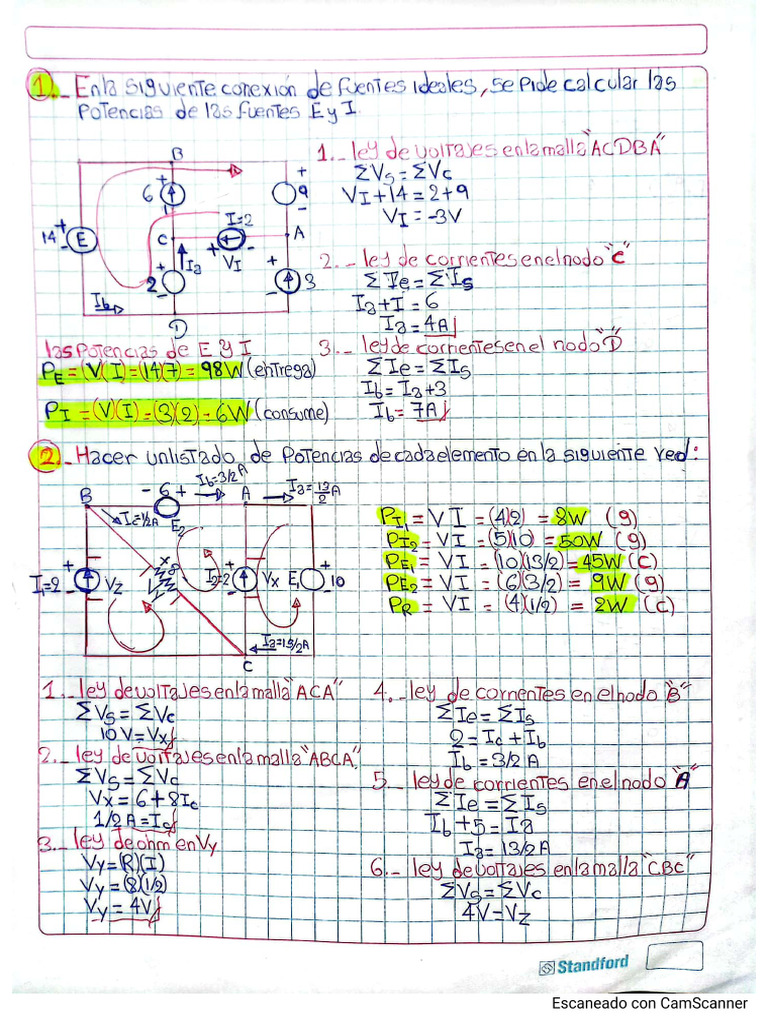 1._ En la siguiente conexión de fuentes ideales, se pide calcular las
Potencias de las fuentes E y I.
B
6
+
-
+
9
-
14
+
E
-
C
I=2
A
+
VI
Ia
+
2
-
+
3
-
Ib
D
1._ ley de voltajes en la malla "ACDBA"
ΣVs = ΣVc
VI + 14 = 2 + 9
VI = -3V
2._ ley de corrientes en el nodo "C"
ΣIe = ΣIs
Ia + I = 6
Ia = 4A
3._ ley de corrientes en el nodo "D"
ΣIe = ΣIs
Ib = Ia + 3
Ib = 7A
las Potencias de E y I
PE = (V)(I) = (14)(7) = 98W (entrega)
PI = (V)(I) = (3)(2) = 6W (consume)
2._ Hacer un listado de Potencias de cada elemento en la siguiente red:
B
- 6 +
Ib=3/2A
A
Ia=13/2A
Ic=1/2A
E2
I1=2
+
-
VZ
I2=2
+
-
Vx
E1
+
10
-
Ia=13/2A
C
PI1 = VI = (4)(2) = 8W (g)
PI2 = VI = (5)(10) = 50W (g)
PE1 = VI = (10)(13/2) = 45W (c)
PE2 = VI = (6)(3/2) = 9W (g)
PR = VI = (4)(1/2) = 2W (c)
1._ ley de voltajes en la malla "ACA"
ΣVs = ΣVc
10V = Vx
2._ ley de voltajes en la malla "ABCA"
ΣVs = ΣVc
Vx = 6 + 8Ic
1/2 A = Ic
3._ ley de ohm en Vy
Vy = (R)(I)
Vy = (8)(1/2)
Vy = 4V
4._ ley de corrientes en el nodo "B"
ΣIe = ΣIs
2 = Ic + Ib
Ib = 3/2 A
5._ ley de corrientes en el nodo "A"
ΣIe = ΣIs
Ib + 5 = Ia
Ia = 13/2 A
6._ ley de voltajes en la malla "CBC"
ΣVs = ΣVc
4V = VZ
Standford
Escaneado con CamScanner